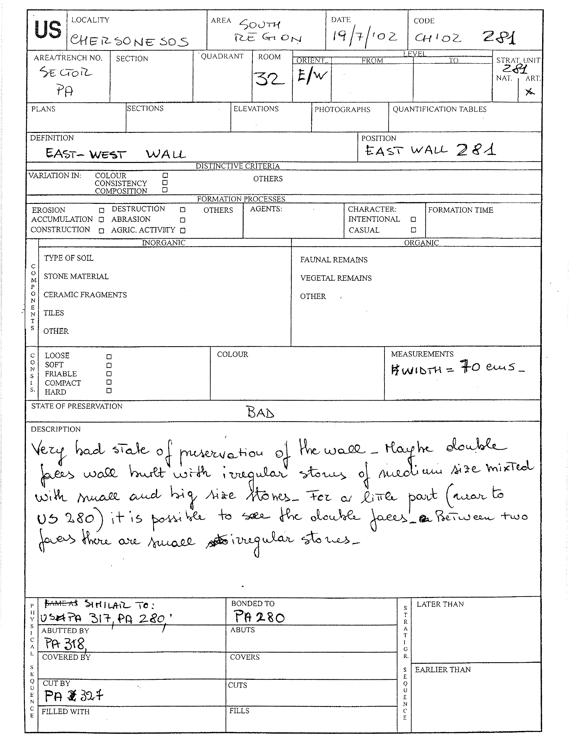 US
LOCALITY
CHERSONESOS
AREA SOUTH
REGION
DATE
19/7/'02
CODE
CH'02 281
AREA/TRENCH NO.
SECTOR
PA
SECTION
QUADRANT
ROOM
32
LEVEL
ORIENT. FROM TO
E/W
STRAT. UNIT
281
NAT. ART.
x
PLANS
SECTIONS
ELEVATIONS
PHOTOGRAPHS
QUANTIFICATION TABLES
DEFINITION
EAST-WEST WALL
POSITION
EAST WALL 281
DISTINCTIVE CRITERIA
VARIATION IN: COLOUR
CONSISTENCY
COMPOSITION
OTHERS
FORMATION PROCESSES
EROSION DESTRUCTION OTHERS
ACCUMULATION ABRASION
CONSTRUCTION AGRIC. ACTIVITY
AGENTS:
CHARACTER:
INTENTIONAL
CASUAL
FORMATION TIME
COMPONENTS
INORGANIC
TYPE OF SOIL
STONE MATERIAL
CERAMIC FRAGMENTS
TILES
OTHER
ORGANIC
FAUNAL REMAINS
VEGETAL REMAINS
OTHER
CONSIS.
LOOSE
SOFT
FRIABLE
COMPACT
HARD
COLOUR
MEASUREMENTS
WIDTH = 70 cms_
STATE OF PRESERVATION
BAD
DESCRIPTION
Very bad state of preservation of the wall_ Maybe double
faces wall built with irregular stones of medium size mixted
with small and big size stones_ For a little part (near to
US 280) it is possible to see the double faces_ Between two
faces there are small irregular stones_
PHYSICAL SEQUENCE
SAME AS SIMILAR TO:
PA 317, PA 280
BONDED TO
PA 280
ABUTTED BY
PA 318,
ABUTS
COVERED BY
COVERS
CUT BY
PA 327
CUTS
FILLED WITH
FILLS
STRATIGR. SEQUENCE
LATER THAN
EARLIER THAN